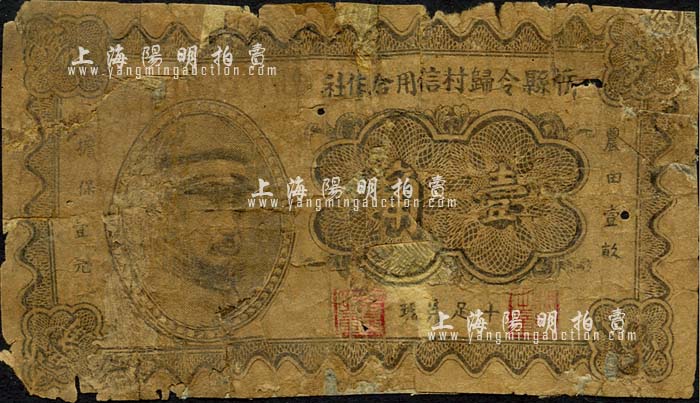 忻縣令歸村信用合作社
農田壹畝
壹角
擔保壹元
十足兌現
上海陽明拍賣
www.yangmingauction.com
上海陽明拍賣
www.yangmingauction.com
上海陽明拍賣
www.yangmingauction.com